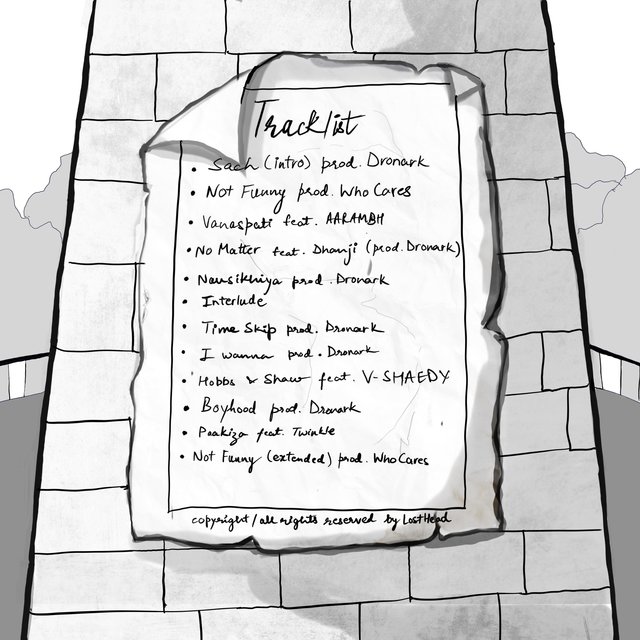 Tracklist
• Sach (intro) prod. Dronark
• Not Funny prod. Who Cares
• Vanaspati feat. AARAMBH
• No Matter feat. Dhanji (prod. Dronark)
• Nausikhiya prod. Dronark
• Interlude
• Time Skip prod. Dronark
• I wanna prod. Dronark
• Hobbs & Shaw feat. V-SHAEDY
• Boyhood prod. Dronark
• Paakiza feat. Twinkle
• Not Funny (extended) prod. Who Cares
copyright/all rights reserved by LostHead